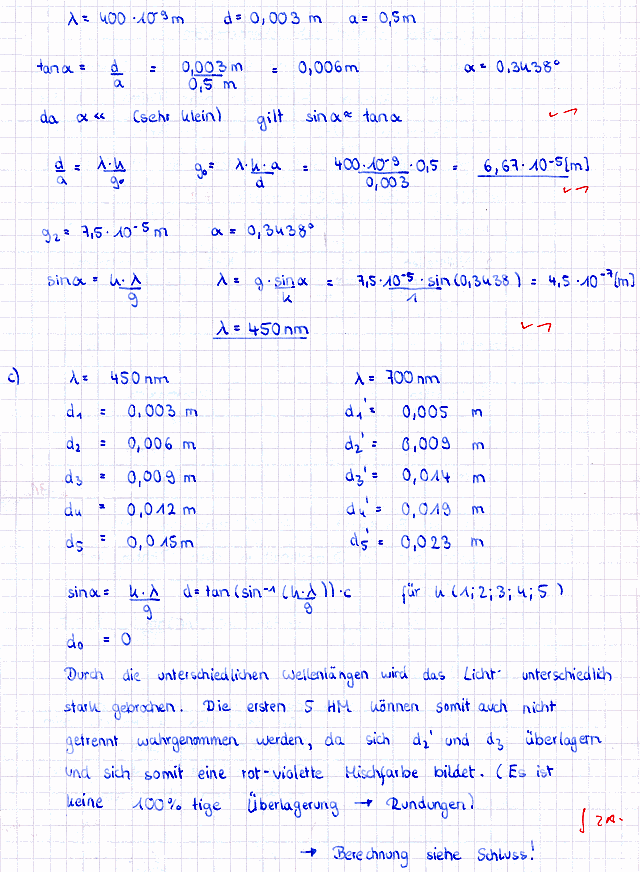 λ = 400 · 10⁻⁹ m d = 0,003 m a = 0,5m
tanα = d/a = 0,003 m / 0,5 m = 0,006m α = 0,3438°
da α << (sehr klein) gilt sinα ≈ tanα
d/a = λ·k/g₀ g₀ = λ·k·a/d = 400·10⁻⁹/0,003 · 0,5 = 6,67 · 10⁻⁵ [m]
g₂ = 7,5 · 10⁻⁵ m α = 0,3438°
sinα = k·λ/g λ = g · sinα/k = 7,5·10⁻⁵ · sin(0,3438)/1 = 4,5 · 10⁻⁷ [m]
λ = 450 nm
c) λ = 450 nm λ = 700 nm
d₁ = 0,003 m d₁' = 0,005 m
d₂ = 0,006 m d₂' = 0,009 m
d₃ = 0,009 m d₃' = 0,014 m
d₄ = 0,012 m d₄' = 0,019 m
d₅ = 0,015m d₅' = 0,023 m
sinα = k·λ/g d = tan(sin⁻¹(k·λ/g))·c für k (1; 2; 3; 4; 5)
d₀ = 0
Durch die unterschiedlichen Wellenlängen wird das Licht unterschiedlich
stark gebrochen. Die ersten 5 HM können somit auch nicht
getrennt wahrgenommen werden, da sich d₂' und d₃ überlagern
und sich somit eine rot-violette Mischfarbe bildet. (Es ist
keine 100%tige Überlagerung → Rundungen!
→ Berechnung siehe Schluss!